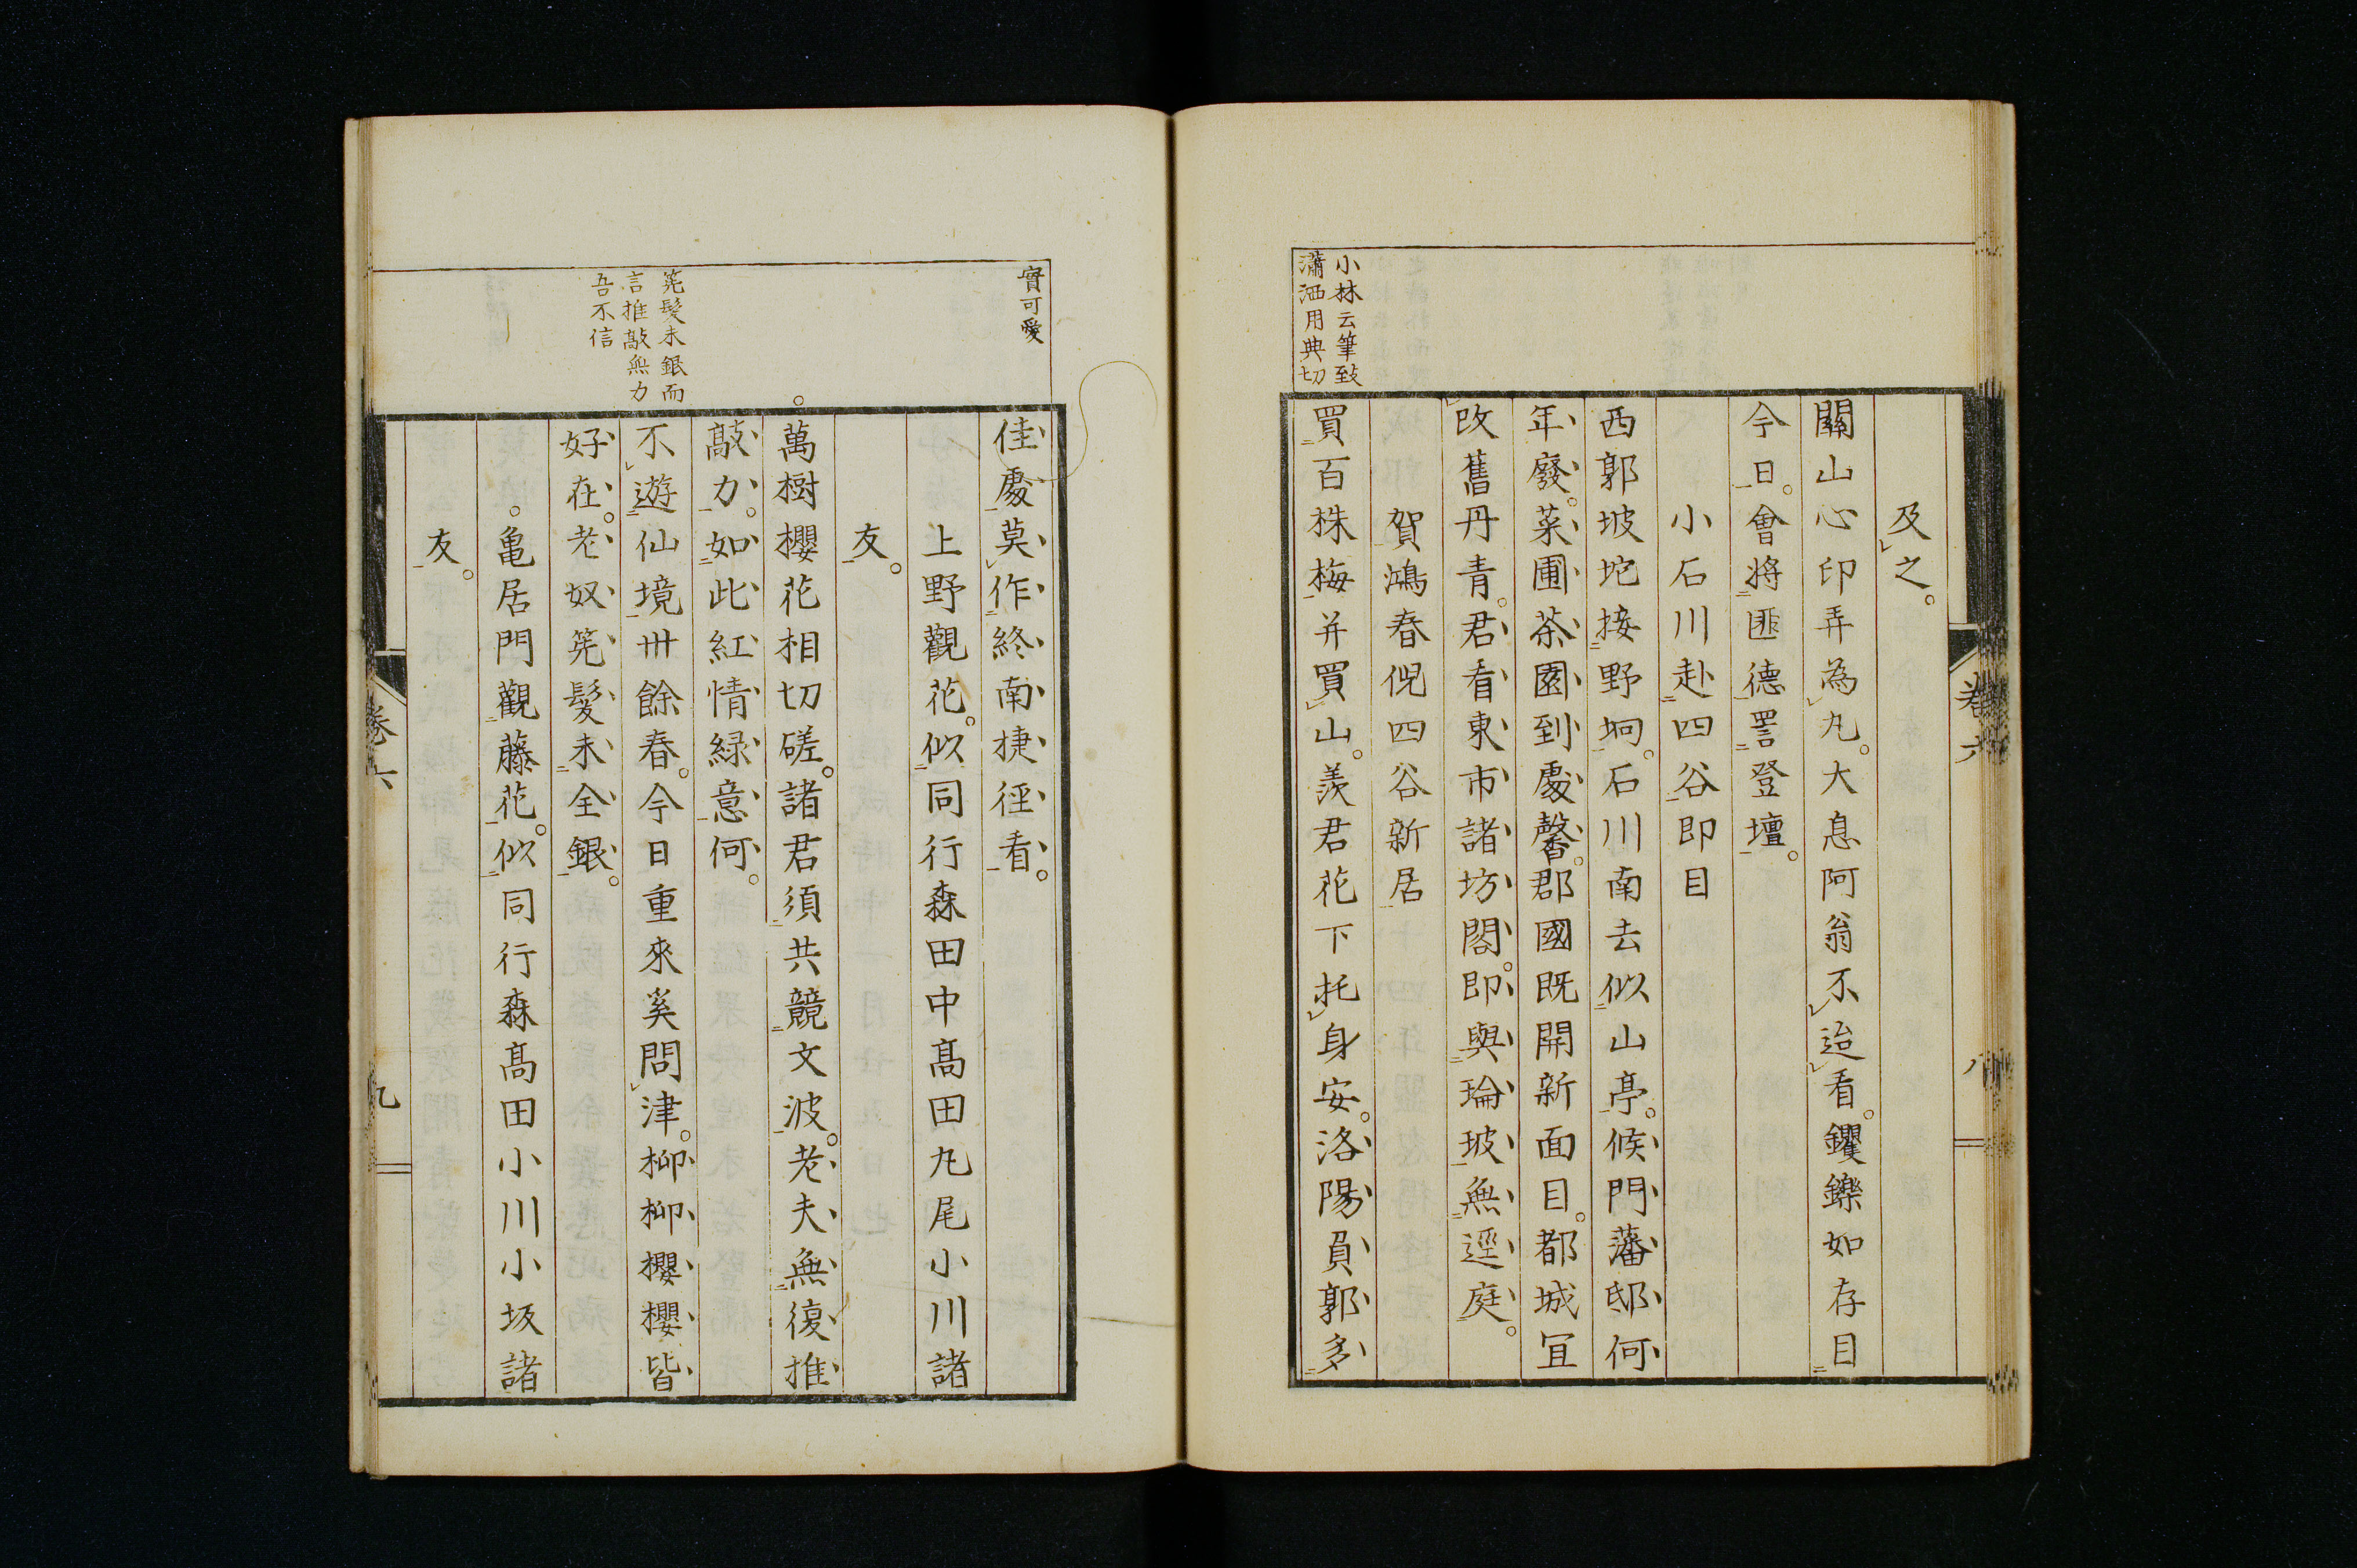 及之。
關山心印弄為丸。大息阿翁不迨看。钁鑠如存目
今日。會將匪德詈登壇。
小石川赴四谷即目
西郭坡坨接野坰。石川南去似山亭。候門藩邸何
年廢。菜圃茶園到處馨。郡國既開新面目。都城冝
改舊丹青。君看東市諸坊閣。即與瑜玻無逕庭。
賀鴻春倪四谷新居
買百株梅并買山。羨君花下托身安。洛陽員郭多
小林云筆致
瀟洒用典切
卷六
八
實可愛
佳處莫作終南捷徑看。
上野觀花。似同行森田中髙田丸尾小川諸
友。
萬樹櫻花相切磋。諸君須共競文波。老夫無復推
敲力。如此紅情緑意何。
不遊仙境卅餘春。今日重來奚問津。柳柳櫻櫻皆
好在。老奴筅髮未全銀。
筅髮未銀而
言推敲無力
吾不信
亀居門觀藤花。似同行森髙田小川小坂諸
友。
卷六
九